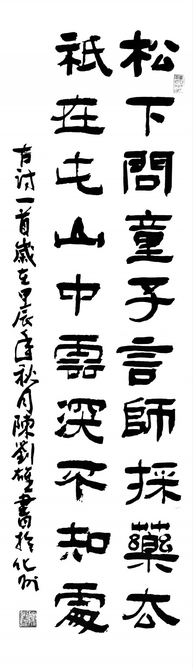 松下問童子言師採藥去
祇在此山中雲深不知處
古詩一首歲在甲辰年秋月陳劉雄書於化州